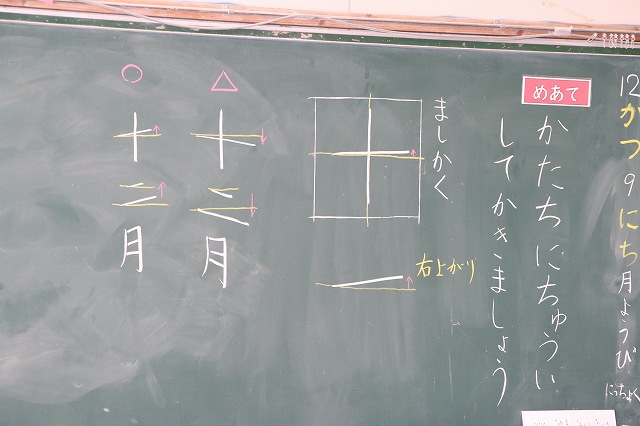 12がつ9にち月ようび
にっちょく
めあて
かたちにちゅうい
してかきましょう
ましかく
十
右上がり
△
十
二
月
○
十
二
月